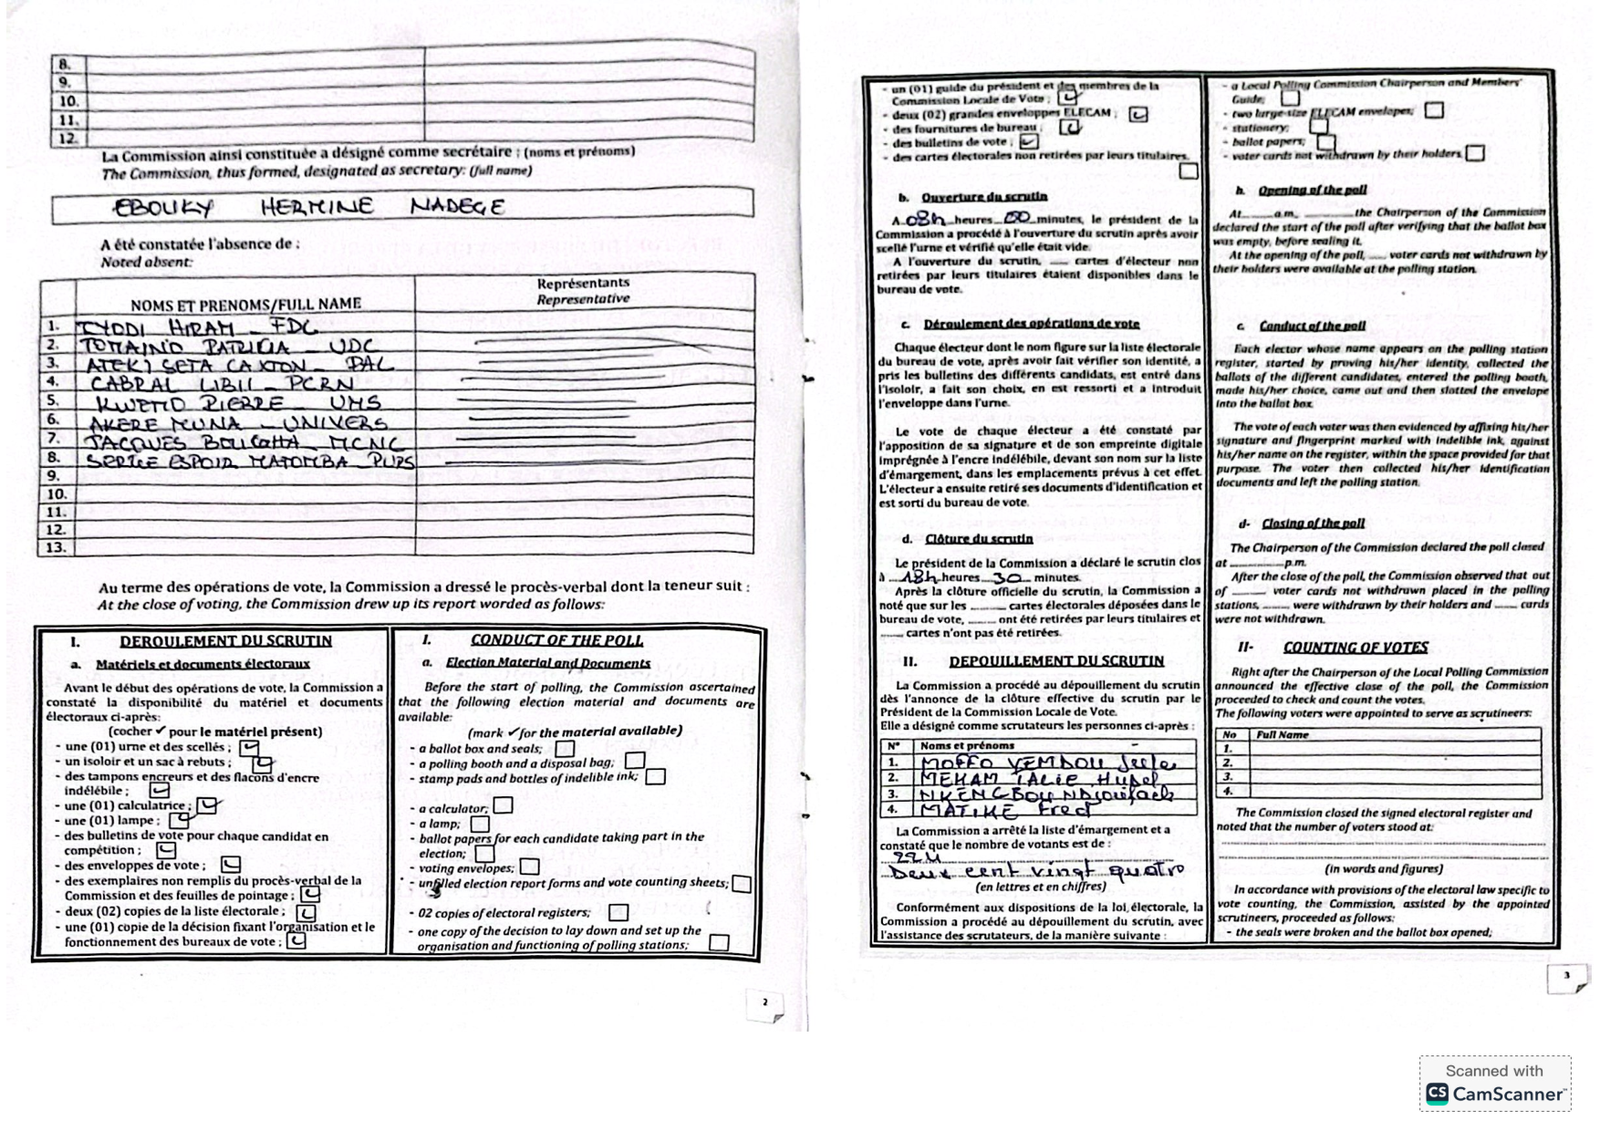 8.
9.
10.
11.
12.
La Commission ainsi constituée a désigné comme secrétaire : (noms et prénoms)
The Commission, thus formed, designated as secretary: (full name)
EBOUKY HERMINE NADEGE
A été constatée l'absence de :
Noted absent:
NOMS ET PRENOMS/FULL NAME
Représentants
Representative
1. TYODI HIRAM _ FDC
2. TOMAINO PATRICIA _ UDC
3. ATEKI SETA CAXTON _ PAL
4. CABRAL LIBII _ PCRN
5. KWEMO PIERRE _ UMS
6. AKERE MUNA _ UNIVERS
7. JACQUES BOUGHA _ MCNC
8. SERGE ESPOIR MATOMBA _ PURS
9.
10.
11.
12.
13.
Au terme des opérations de vote, la Commission a dressé le procès-verbal dont la teneur suit :
At the close of voting, the Commission drew up its report worded as follows:
I. DEROULEMENT DU SCRUTIN
a. Matériels et documents électoraux
Avant le début des opérations de vote, la Commission a
constaté la disponibilité du matériel et documents
électoraux ci-après:
(cocher ✓ pour le matériel présent)
- une (01) urne et des scellés ;
- un isoloir et un sac à rebuts ;
- des tampons encreurs et des flacons d'encre
indélébile ;
- une (01) calculatrice ;
- une (01) lampe ;
- des bulletins de vote pour chaque candidat en
compétition ;
- des enveloppes de vote ;
- des exemplaires non remplis du procès-verbal de la
Commission et des feuilles de pointage ;
- deux (02) copies de la liste électorale ;
- une (01) copie de la décision fixant l'organisation et le
fonctionnement des bureaux de vote ;
I. CONDUCT OF THE POLL
a. Election Material and Documents
Before the start of polling, the Commission ascertained
that the following election material and documents are
available:
(mark ✓ for the material available)
- a ballot box and seals;
- a polling booth and a disposal bag;
- stamp pads and bottles of indelible ink;
- a calculator;
- a lamp;
- ballot papers for each candidate taking part in the
election;
- voting envelopes;
- unfilled election report forms and vote counting sheets;
- 02 copies of electoral registers;
- one copy of the decision to lay down and set up the
organisation and functioning of polling stations;
2
- un (01) guide du président et des membres de la
Commission Locale de Vote ;
- deux (02) grandes enveloppes ELECAM ;
- des fournitures de bureau ;
- des bulletins de vote ;
- des cartes électorales non retirées par leurs titulaires.
b. Ouverture du scrutin
A 08h heures 00 minutes, le président de la
Commission a procédé à l'ouverture du scrutin après avoir
scellé l'urne et vérifié qu'elle était vide.
A l'ouverture du scrutin, ...... cartes d'électeur non
retirées par leurs titulaires étaient disponibles dans le
bureau de vote.
c. Déroulement des opérations de vote
Chaque électeur dont le nom figure sur la liste électorale
du bureau de vote, après avoir fait vérifier son identité, a
pris les bulletins des différents candidats, est entré dans
l'isoloir, a fait son choix, en est ressorti et a introduit
l'enveloppe dans l'urne.
Le vote de chaque électeur a été constaté par
l'apposition de sa signature et de son empreinte digitale
imprégnée à l'encre indélébile, devant son nom sur la liste
d'émargement, dans les emplacements prévus à cet effet.
L'électeur a ensuite retiré ses documents d'identification et
est sorti du bureau de vote.
d. Clôture du scrutin
Le président de la Commission a déclaré le scrutin clos
à 18h heures 30 minutes.
Après la clôture officielle du scrutin, la Commission a
noté que sur les ........ cartes électorales déposées dans le
bureau de vote, ........ ont été retirées par leurs titulaires et
...... cartes n'ont pas été retirées.
II. DEPOUILLEMENT DU SCRUTIN
La Commission a procédé au dépouillement du scrutin
dès l'annonce de la clôture effective du scrutin par le
Président de la Commission Locale de Vote.
Elle a désigné comme scrutateurs les personnes ci-après :
N° Noms et prénoms
1. MOFFO YEMDOU
2. MEHAM TALIE
3.
4. MATIKE Fred
La Commission a arrêté la liste d'émargement et a
constaté que le nombre de votants est de :
224
Deux cent vingt quatro
(en lettres et en chiffres)
Conformément aux dispositions de la loi électorale, la
Commission a procédé au dépouillement du scrutin, avec
l'assistance des scrutateurs, de la manière suivante :
- a Local Polling Commission Chairperson and Members'
Guide;
- two large-size ELECAM envelopes;
- stationery;
- ballot papers;
- voter cards not withdrawn by their holders.
b. Opening of the poll
At........a.m, ............the Chairperson of the Commission
declared the start of the poll after verifying that the ballot box
was empty, before sealing it.
At the opening of the poll, ..... voter cards not withdrawn by
their holders were available at the polling station.
c. Conduct of the poll
Each elector whose name appears on the polling station
register, started by proving his/her identity, collected the
ballots of the different candidates, entered the polling booth,
made his/her choice, came out and then slotted the envelope
into the ballot box.
The vote of each voter was then evidenced by affixing his/her
signature and fingerprint marked with indelible ink, against
his/her name on the register, within the space provided for that
purpose. The voter then collected his/her identification
documents and left the polling station.
d- Closing of the poll
The Chairperson of the Commission declared the poll closed
at ..............p.m.
After the close of the poll, the Commission observed that out
of ........ voter cards not withdrawn placed in the polling
stations, ....... were withdrawn by their holders and ...... cards
were not withdrawn.
II- COUNTING OF VOTES
Right after the Chairperson of the Local Polling Commission
announced the effective close of the poll, the Commission
proceeded to check and count the votes.
The following voters were appointed to serve as scrutineers:
No Full Name
1.
2.
3.
4.
The Commission closed the signed electoral register and
noted that the number of voters stood at:
(in words and figures)
In accordance with provisions of the electoral law specific to
vote counting, the Commission, assisted by the appointed
scrutineers, proceeded as follows:
- the seals were broken and the ballot box opened;
3
Scanned with
CS CamScanner